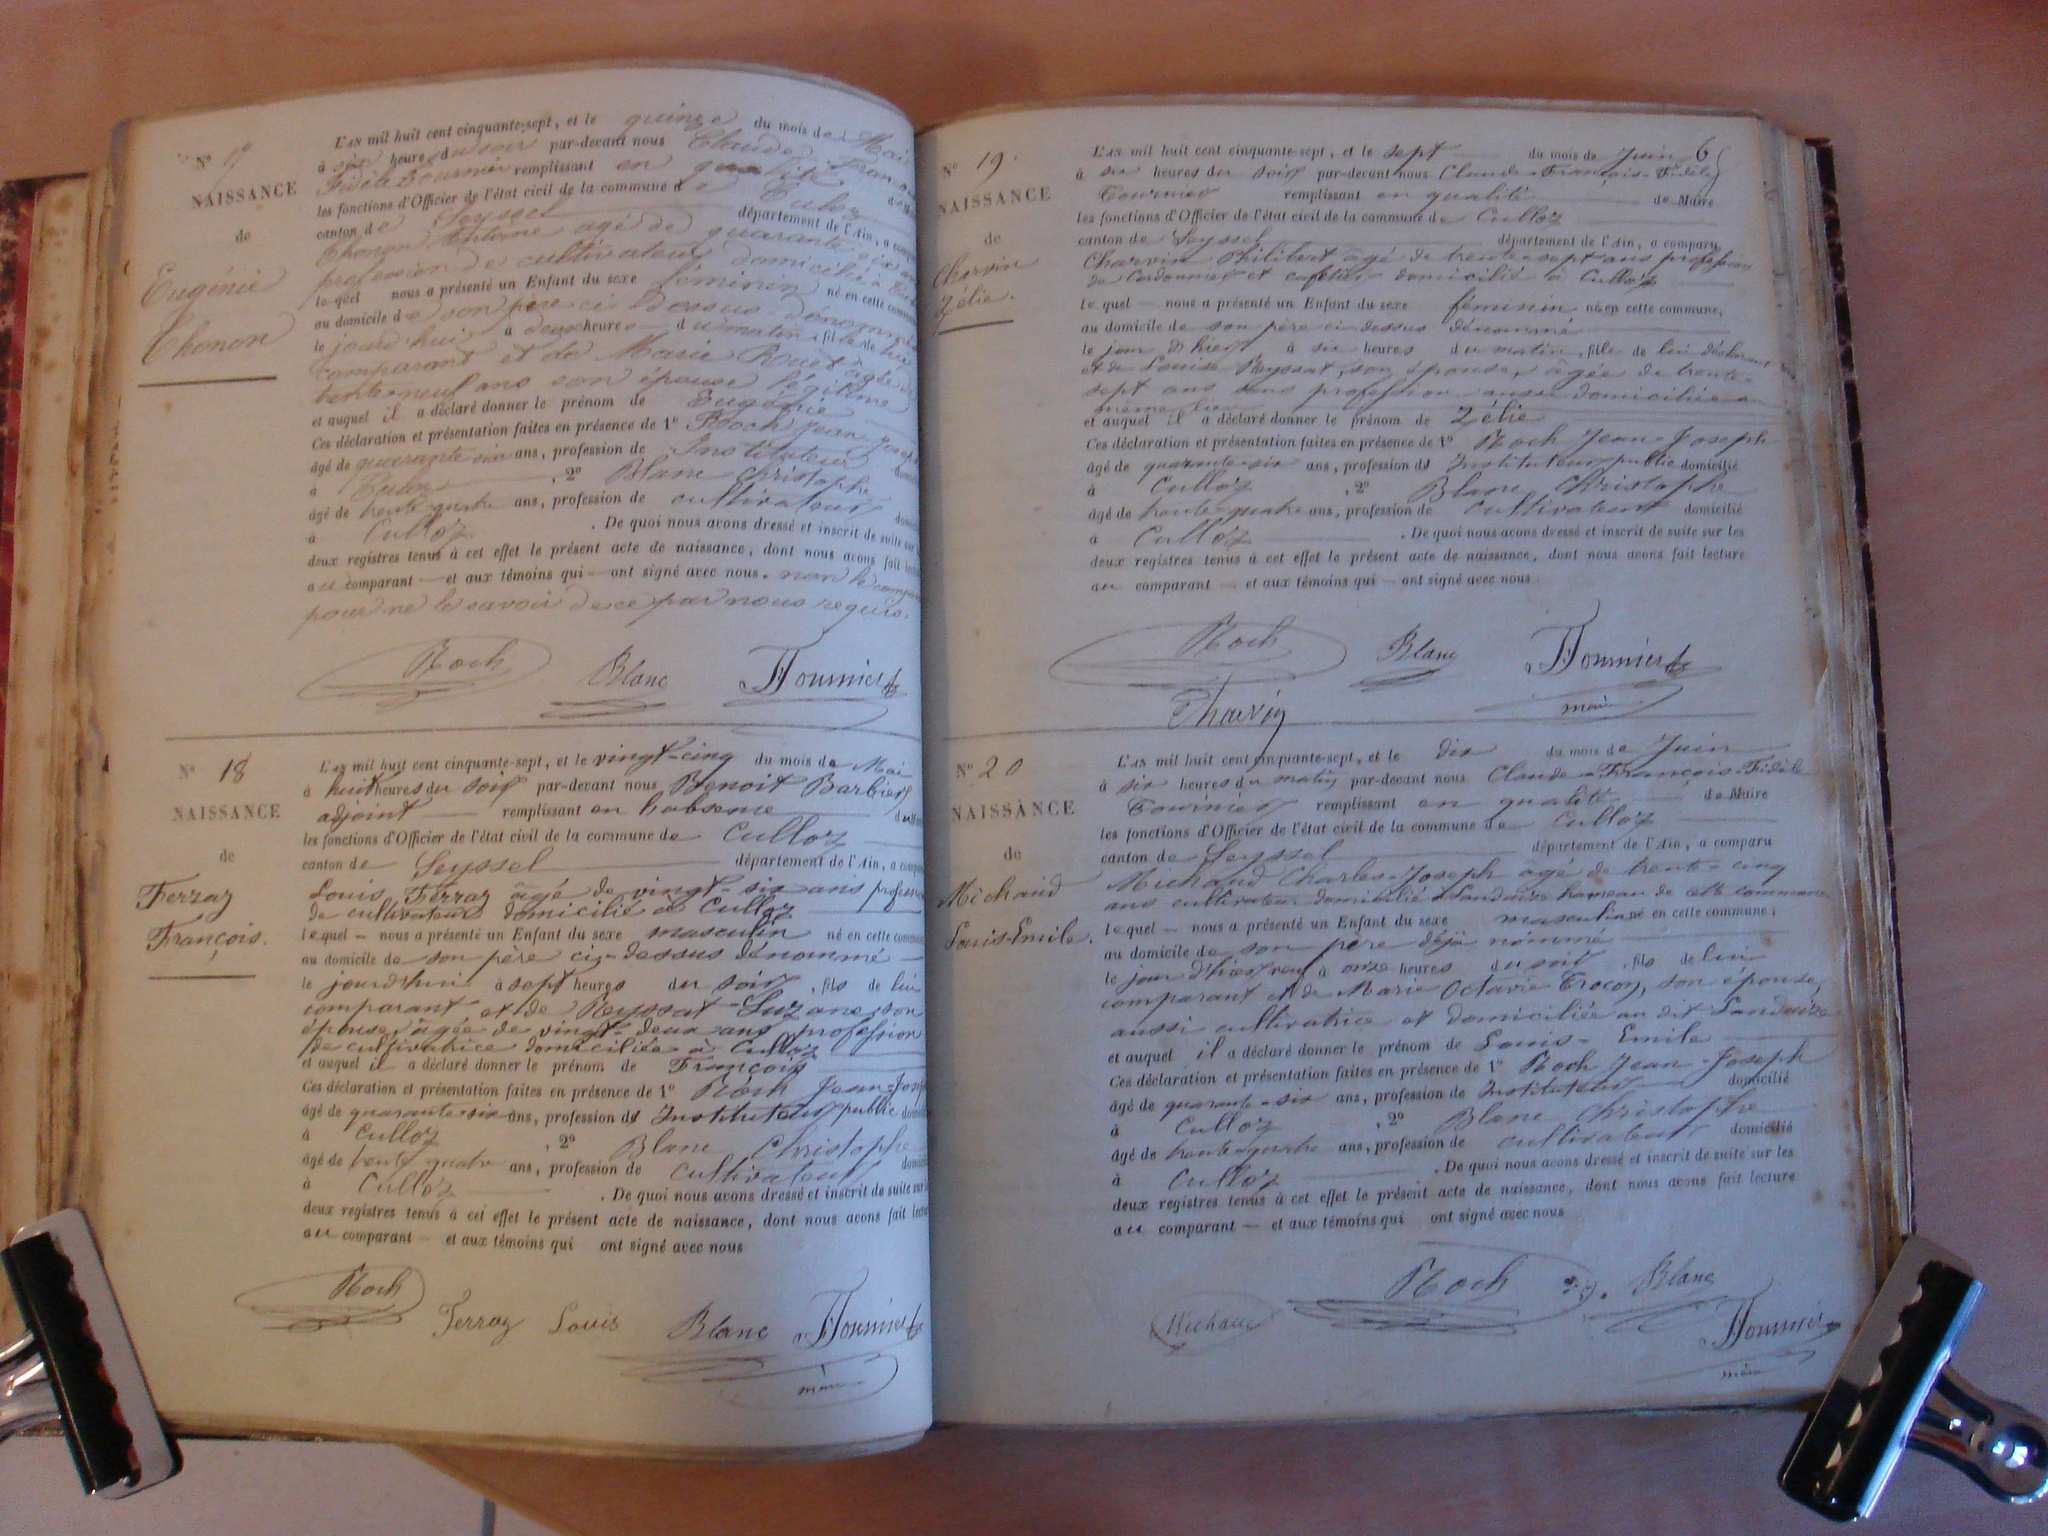 N° 17
NAISSANCE
de
Eugénie
Thonon
L'AN mil huit cent cinquante-sept, et le quinze du mois de Mai
à six heure du soir par-devant nous Claude Franc
Fidèle Tournier remplissant en qualité de
les fonctions d'Officier de l'état civil de la commune de Culoz
canton de Seyssel département de l'Ain, a comp
Thonon Antoine agé de quarante six ans
profession de cultivateur domicilié à Culoz
lequel nous a présenté un Enfant du sexe féminin né en cette comm
au domicile de son père ci dessus dénommé
le jourd'hui à deux heures du matin, fille de lui
comparant et de Marie Bouet agée de
trente-neuf ans son épouse légitime
et auquel il a déclaré donner le prénom de Eugénie
Ces déclaration et présentation faites en présence de 1° Roch Jean Joseph
âgé de quarante six ans, profession de Instituteur domici
à Culoz , 2° Blanc Christophe
âgé de trente-quatre ans, profession de cultivateur domi
à Culloz . De quoi nous avons dressé et inscrit de suite sur
deux registres tenus à cet effet le présent acte de naissance, dont nous avons fait lecture
au comparant — et aux témoins qui — ont signé avec nous. non le compar
pour ne le savoir de ce par nous requis.
Roch Blanc Tournier
N° 18
NAISSANCE
de
Ferraz
François.
L'AN mil huit cent cinquante-sept, et le vingt-cinq du mois de Mai
à huit heures du soir par-devant nous Benoit Barbier
adjoint — remplissant en l'absence du
les fonctions d'Officier de l'état civil de la commune de Culloz
canton de Seyssel département de l'Ain, a comp
Louis Ferraz âgé de vingt-six ans profession
de cultivateur domicilié à Culloz
lequel — nous a présenté un Enfant du sexe masculin né en cette comm
au domicile de son père ci-dessus dénommé
le jourd'hui à sept heures du soir, fils de lui
comparant et de Reyssat Suzanne, son
épouse, âgée de vingt-deux ans profession
de cultivatrice domiciliée à Culloz
et auquel il a déclaré donner le prénom de François
Ces déclaration et présentation faites en présence de 1° Roch Jean-Josep
âgé de quarante-six ans, profession de Instituteur public domi
à Culloz , 2° Blanc Christophe
âgé de trente quatre ans, profession de cultivateur domici
à Culloz . De quoi nous avons dressé et inscrit de suite sur
deux registres tenus à cet effet le présent acte de naissance, dont nous avons fait lect
au comparant — et aux témoins qui ont signé avec nous
Roch Ferraz Louis Blanc Tournier
maire
6
N° 19.
NAISSANCE
de
Charvin
Zélie.
L'AN mil huit cent cinquante-sept, et le sept du mois de Juin
à six heures du soir par-devant nous Claude-François-Fidèle
Tournier remplissant en qualité de Maire
les fonctions d'Officier de l'état civil de la commune de Culloz
canton de Seyssel département de l'Ain, a comparu
Charvin Philibert âgé de trente-sept ans profession
de Cordonnier et cafetier domicilié à Culloz
lequel — nous a présenté un Enfant du sexe féminin né en cette commune,
au domicile de son père ci dessus dénommé
le jour d'hier à six heures du matin, fille de lui déclarant
et de Louise Reyssat, son épouse, âgée de trente-
sept ans sans profession aussi domiciliée au
même lieu
et auquel il a déclaré donner le prénom de Zélie
Ces déclaration et présentation faites en présence de 1° Roch Jean-Joseph
âgé de quarante-six ans, profession de Instituteur public domicilié
à Culloz , 2° Blanc Christophe
âgé de trente-quatre ans, profession de cultivateur domicilié
à Culloz . De quoi nous avons dressé et inscrit de suite sur les
deux registres tenus à cet effet le présent acte de naissance, dont nous avons fait lecture
au comparant — et aux témoins qui — ont signé avec nous.
Roch Blanc Tournier
Charvin maire
N° 20
NAISSANCE
de
Michaud
Louis-Emile.
L'AN mil huit cent cinquante-sept, et le dix du mois de Juin
à six heures du matin par-devant nous Claude-François-Fidèle
Tournier remplissant en qualité de Maire
les fonctions d'Officier de l'état civil de la commune de Culloz
canton de Seyssel département de l'Ain, a comparu
Michaud Charles-Joseph agé de trente-cinq
ans cultivateur domicilié à Landaize hameau de cette commune
lequel — nous a présenté un Enfant du sexe masculin né en cette commune;
au domicile de son père déjà nommé
le jour d'hier à onze heures du soir, fils de lui
comparant et de Marie Octavie Trocon, son épouse,
aussi cultivatrice et domiciliée au dit Landaize
et auquel il a déclaré donner le prénom de Louis-Emile
Ces déclaration et présentation faites en présence de 1° Roch Jean-Joseph
âgé de quarante-six ans, profession de Instituteur domicilié
à Culloz , 2° Blanc Christophe
âgé de trente-quatre ans, profession de cultivateur domicilié
à Culloz . De quoi nous avons dressé et inscrit de suite sur les
deux registres tenus à cet effet le présent acte de naissance, dont nous avons fait lecture
au comparant — et aux témoins qui ont signé avec nous
Michaud Roch Blanc
Tournier
maire